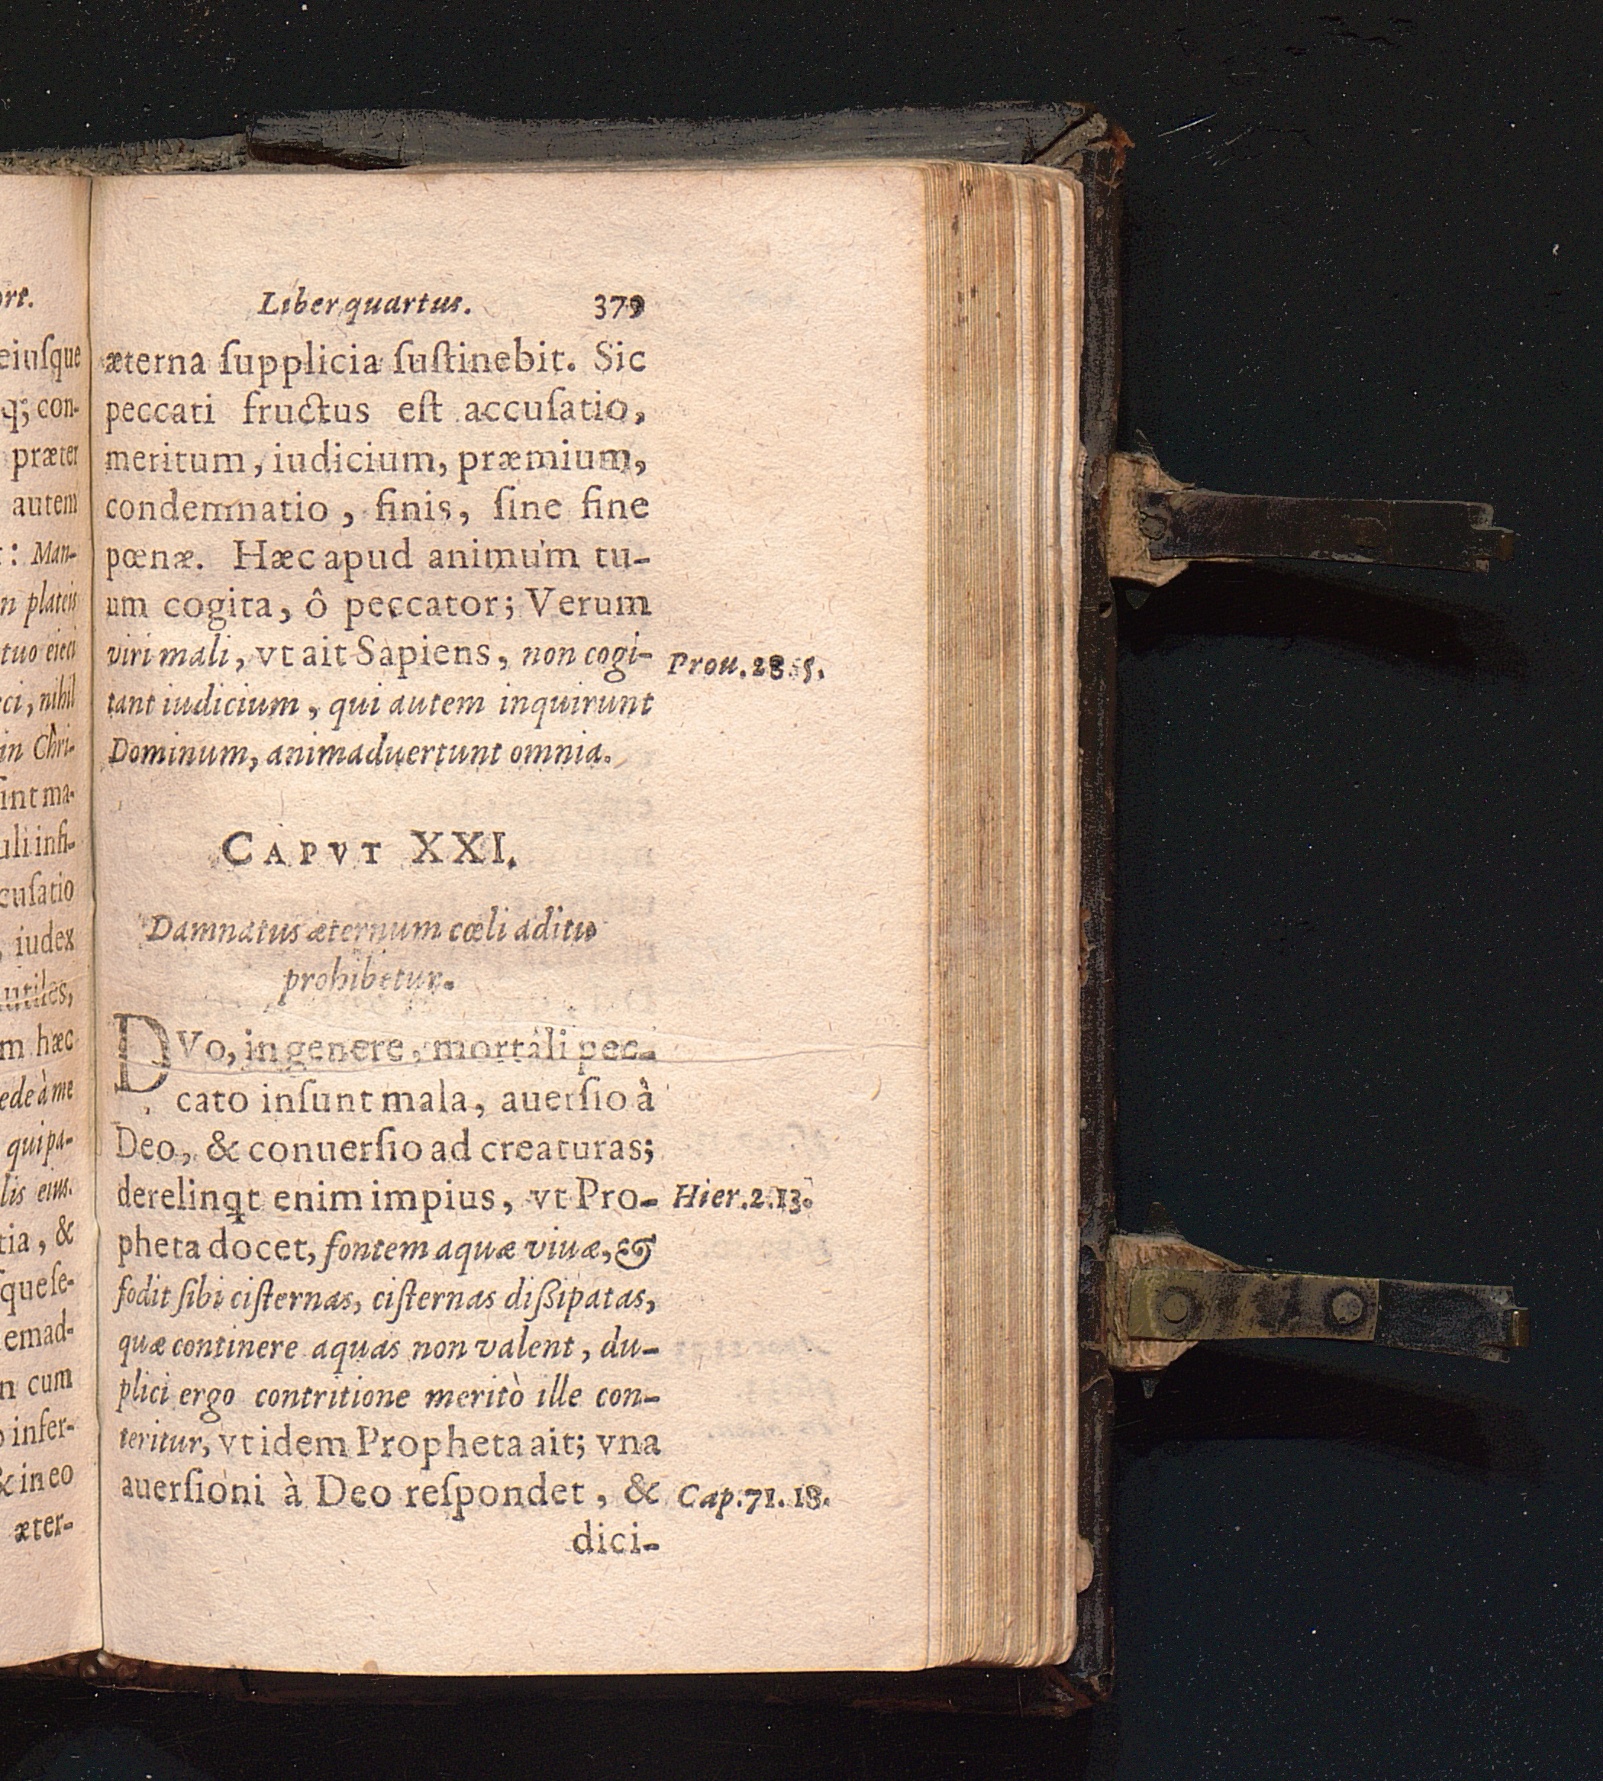 ort.
eiuſque
q; con-
præter
autem
: Man-
n plateis
tuo eieci
ci, nihil
in Chri-
ſint ma-
uli infi-
cuſatio
, iudex
utiles,
m hæc
ede à me
qui pa-
lis eius.
tia, &
ſque ſe-
emad-
n cum
o infer-
& in eo
æter-
Liber quartus. 379
æterna ſupplicia ſuſtinebit. Sic
peccati fructus eſt accuſatio,
meritum, iudicium, præmium,
condemnatio, finis, ſine fine
pœnæ. Hæc apud animum tu-
um cogita, ô peccator; Verum
viri mali, vt ait Sapiens, non cogi-
Prou. 28.5.
tant iudicium, qui autem inquirunt
Dominum, animaduertunt omnia.
CAPVT XXI.
Damnatus æternum cœli aditu
prohibetur.
DVo, in genere, mortali pec-
cato inſunt mala, auerſio à
Deo, & conuerſio ad creaturas;
derelinqt enim impius, vt Pro-
Hier. 2. 13.
pheta docet, fontem aquæ viuæ, &
fodit ſibi ciſternas, ciſternas diſſipatas,
quæ continere aquas non valent, du-
plici ergo contritione meritò ille con-
teritur, vt idem Propheta ait; vna
auerſioni à Deo reſpondet, &
Cap. 71. 18.
dici-